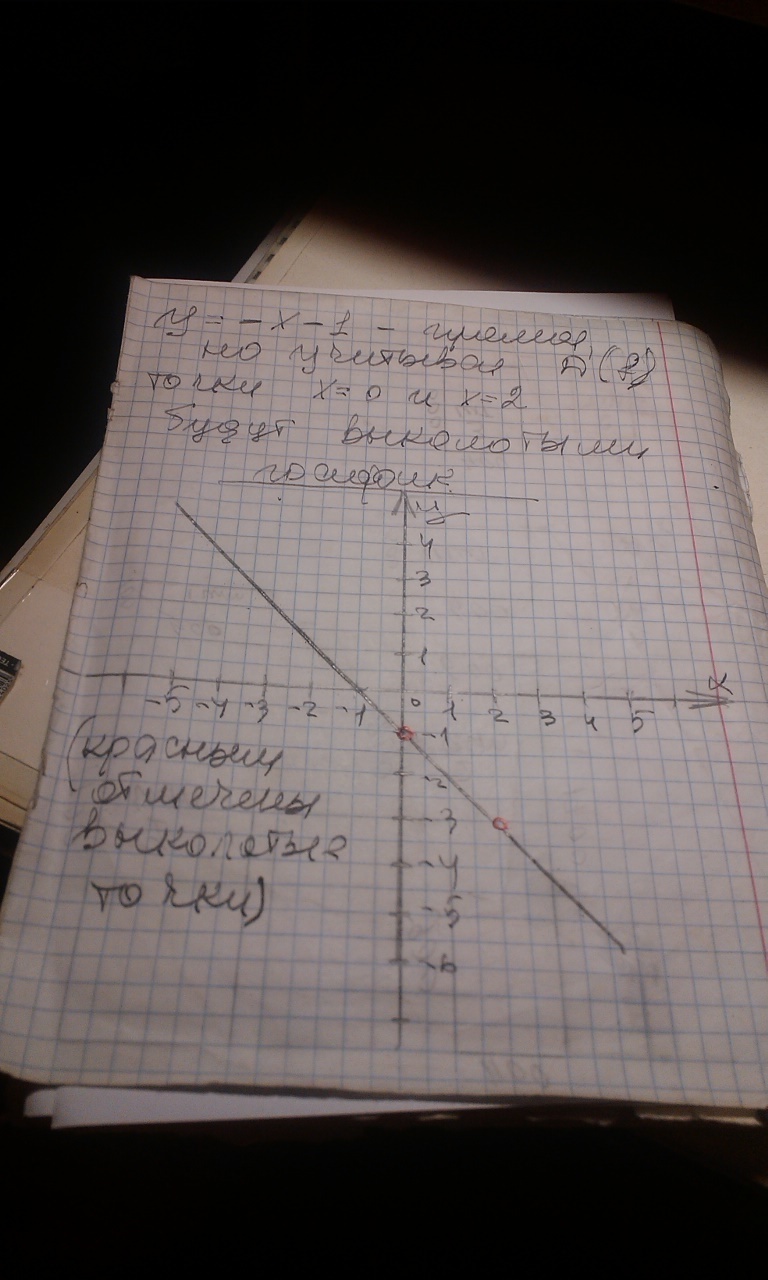 y = -x - 1 - прямая,
но учитывая D(y)
точки x=0 и x=2
будут выколотыми
график
y
4
3
2
1
x
-5 -4 -3 -2 -1 0 1 2 3 4 5
-1
-2
-3
-4
-5
-6
(красным
отмечены
выколотые
точки)